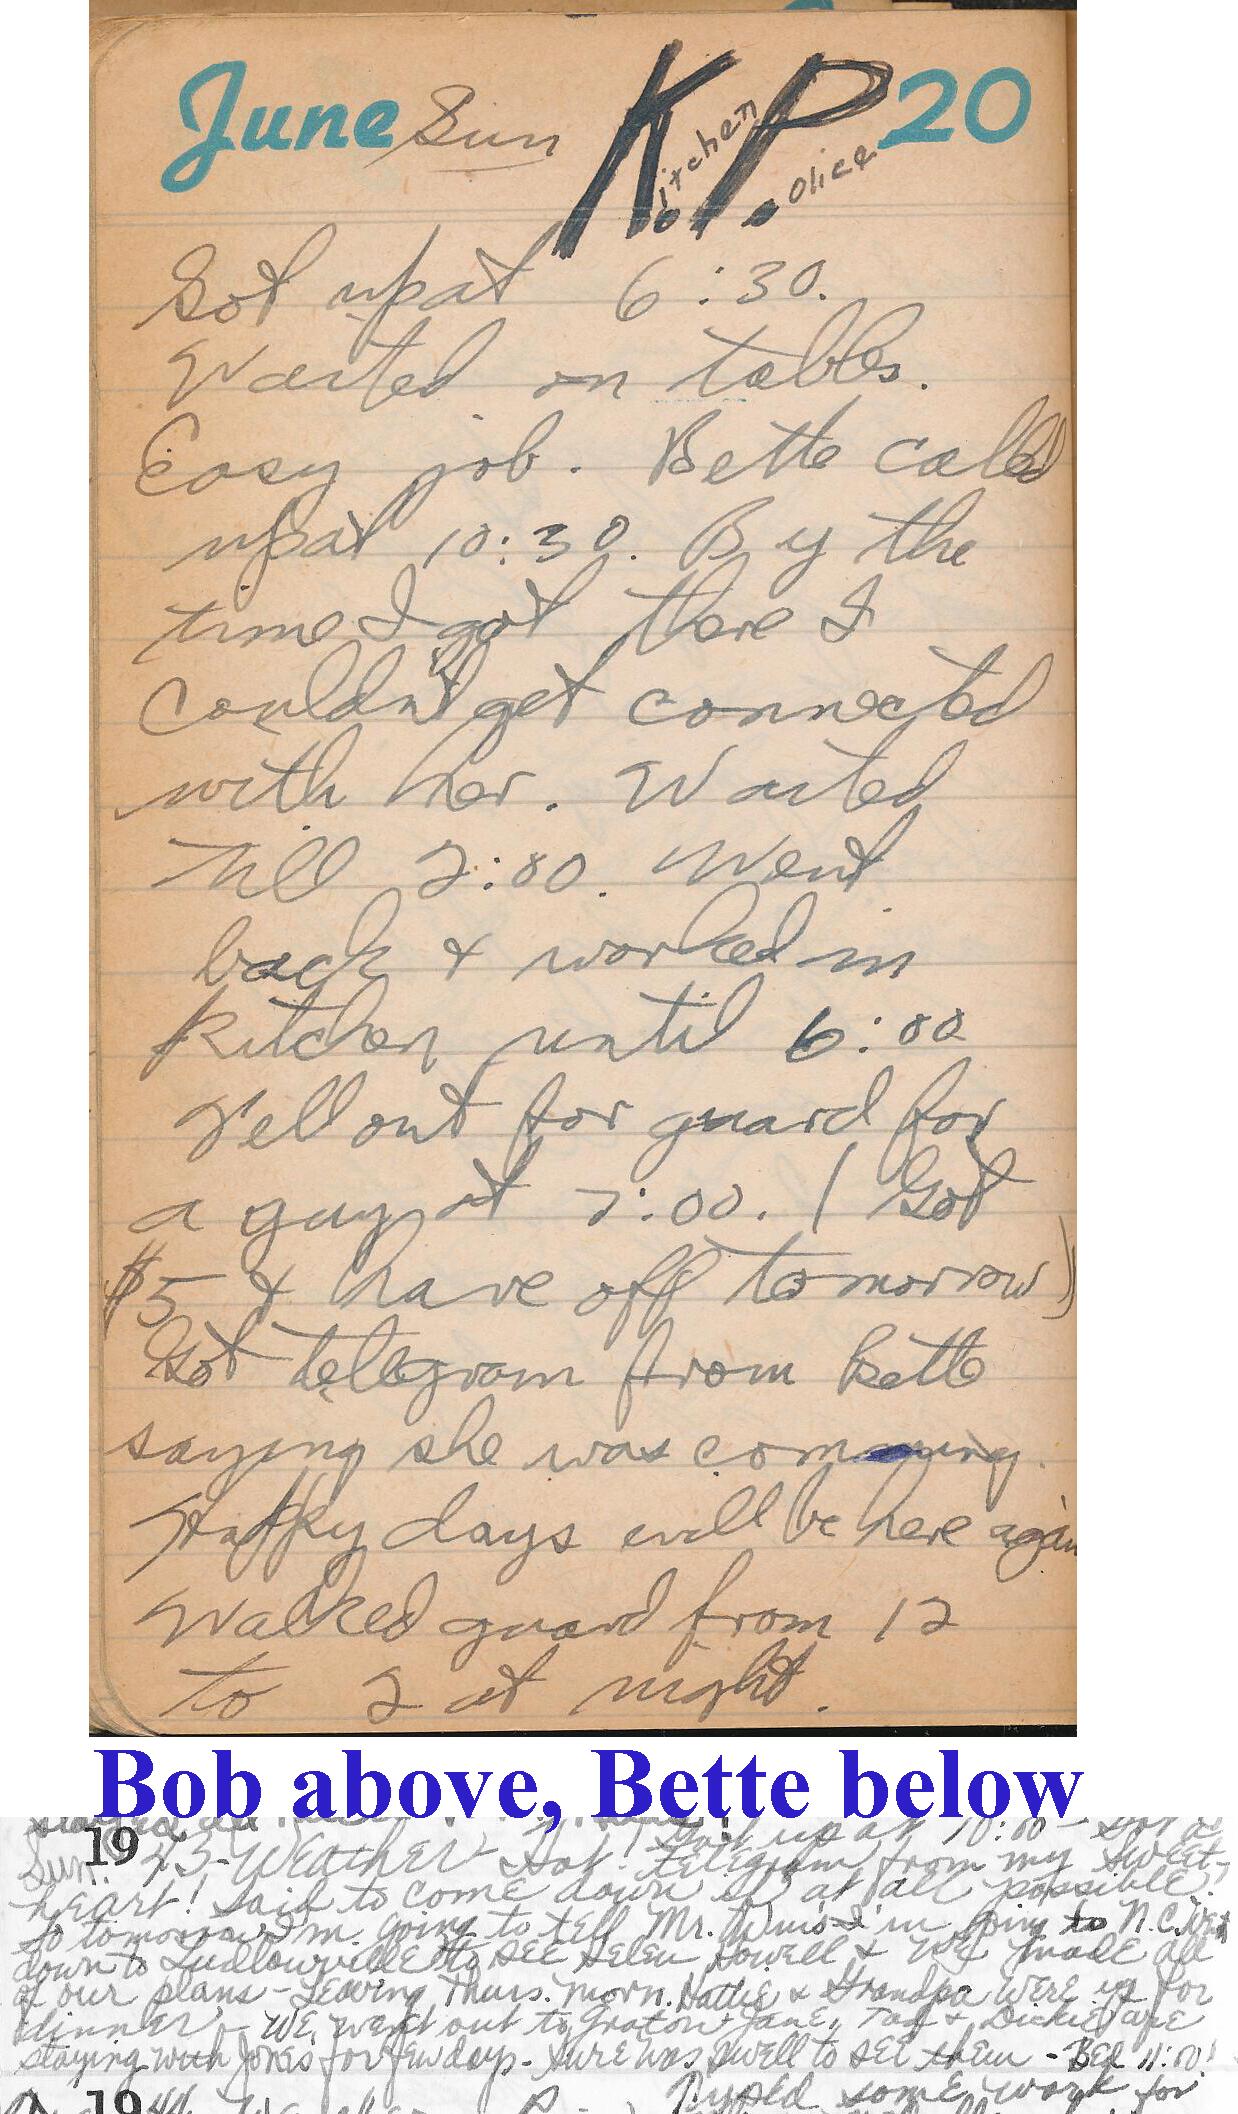 June Sun K.P. 20
itchen olice
Got up at 6:30.
Waited on tables.
Easy job. Bette called
up at 10:30. By the
time I got there I
couldn't get connected
with her. Waited
till 2:00. Went
back & worked in
kitchen until 6:00
Fell out for guard for
a guy at 7:00. (Got
$5 & have off tomorrow)
Got telegram from Bette
saying she was comming.
Happy days will be here again
Walked guard from 12
to 2 at night.
Bob above, Bette below
19 up at 10:00 - Got a
Sun. 43 - Weather Hot! telegram from my sweet-
heart! Said to come down if at all possible!
So tomorrow I'm going to tell Mr. I'm going to N.C. Went
down to Ludlowville to see Helen Howell & we made all
of our plans - Leaving Thurs. morn. Hattie & Grandpa were up for
dinner - We went out to Groton - Jane, Tag & Dickie are
staying with Jones for few days - Sure was swell to see them - Bed 11:00!
19 Typed some work for